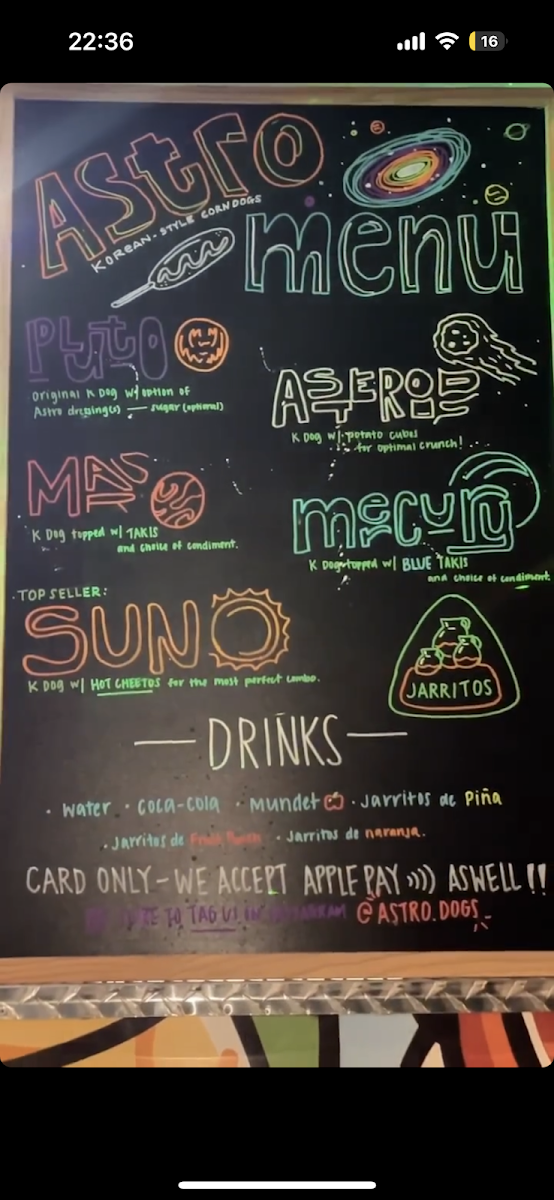 22:36
16
Astro
KOREAN-STYLE CORNDOGS
menu
PLUTO
original K Dog w/ option of
Astro dressing(s) — sugar (optional)
ASTEROID
K Dog w/ potato cubes
for optimal crunch!
MARS
K Dog topped w/ TAKIS
and choice of condiment.
mercury
K Dog topped w/ BLUE TAKIS
and choice of condiment
TOP SELLER:
SUN
K Dog w/ HOT CHEETOS for the most perfect combo.
JARRITOS
— DRINKS —
· water · coca-cola · Mundet · Jarritos de Piña
· Jarritos de Fruit Punch · Jarritos de naranja.
CARD ONLY - WE ACCEPT APPLE PAY ))) ASWELL !!
TO TAG US @ASTRO.DOGS